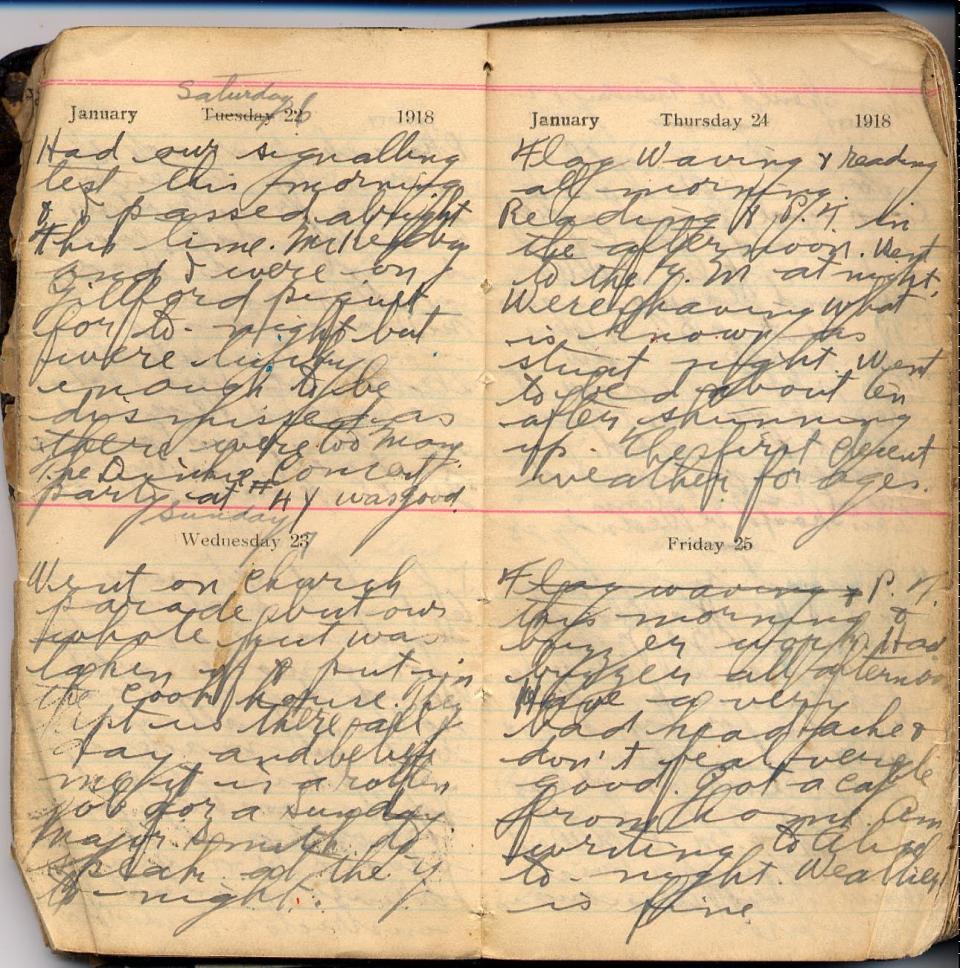 Saturday 26
January Tuesday 22 1918
Had our signalling
test this morning
& I passed alright
this time.
and I were on
picquet
for to-night but
were lucky
enough to be
dismissed as
there were too many.
The Dumbells Concert
party at Y was good.
Sunday
Wednesday 23
Went on Church
parade but our
whole hut was
taken off & put in
the cook house. They
kept us there all
day and believe
me it is a rotten
job for a Sunday.
Major
speak at the Y
to-night.
January Thursday 24 1918
Flag Waving & reading
all morning.
Reading & P.T. in
the afternoon. Went
to the Y.M. at night.
Were having what
is known as
stunt night. Went
to bed about ten
after shinning
up. The first decent
weather for ages.
Friday 25
Flag waving & P.T.
this morning &
buzzer work. Had
buzzer all afternoon
Have a very
bad headache &
don't feel very
good. Got a cable
from home. Am
writing to
to-night. Weather
is fine.